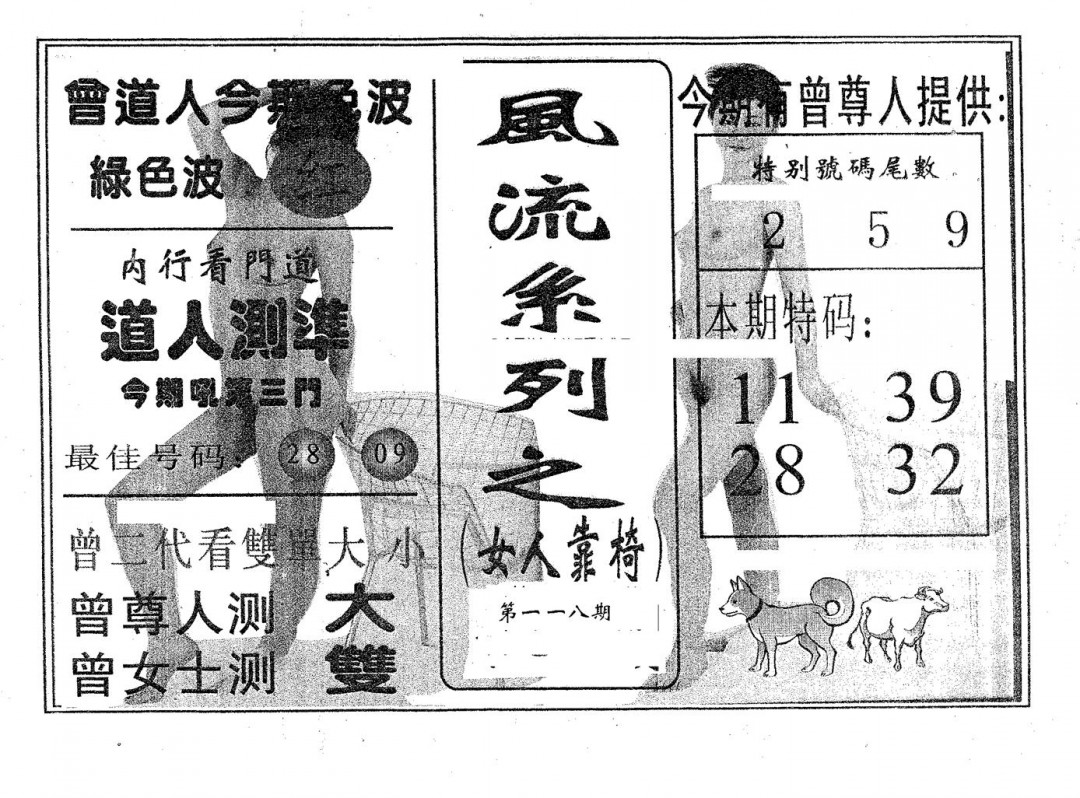 曾道人今期色波
綠色波
內行看門道
道人測準
今期吼
三門
最佳号码:
28 09
曾二代看雙單大小
曾尊人测 大
曾女士测 雙
風流系列之
(女人靠椅)
第一一八期
今期有曾尊人提供:
特别號碼尾數
2 5 9
本期特码:
11 39
28 32